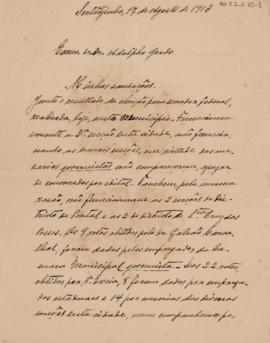 Sertãozinho, 17 de Agosto de 1913
Exmo. Sr. Dr. Adolpho Gordo
Minhas saudações.
Junto o resultado da eleição para senador federal,
realizada, hoje, neste município. Funccionou
somente a 1ª secção desta cidade, não funccio-
nando as demais secções, em virtude dos me-
sarios não comparecerem, apezar
de convocados por edital. Tambem, pela mesma
razão, não funccionaram as 2 secções do dis-
tricto de Pontal e as 2 do districto de Sta. Cruz das
Posses. Os 9 votos obtidos pelo dr. Galeão Carva-
lhal, foram dados pelos empregados da Ca-
mara Municipal. Dos 22 votos,
obtidos por V. Excia, 8 foram dados por emprega-
dos estadoaes e 14 por mesarios das diversas
secções desta cidade, meus companheiros po-